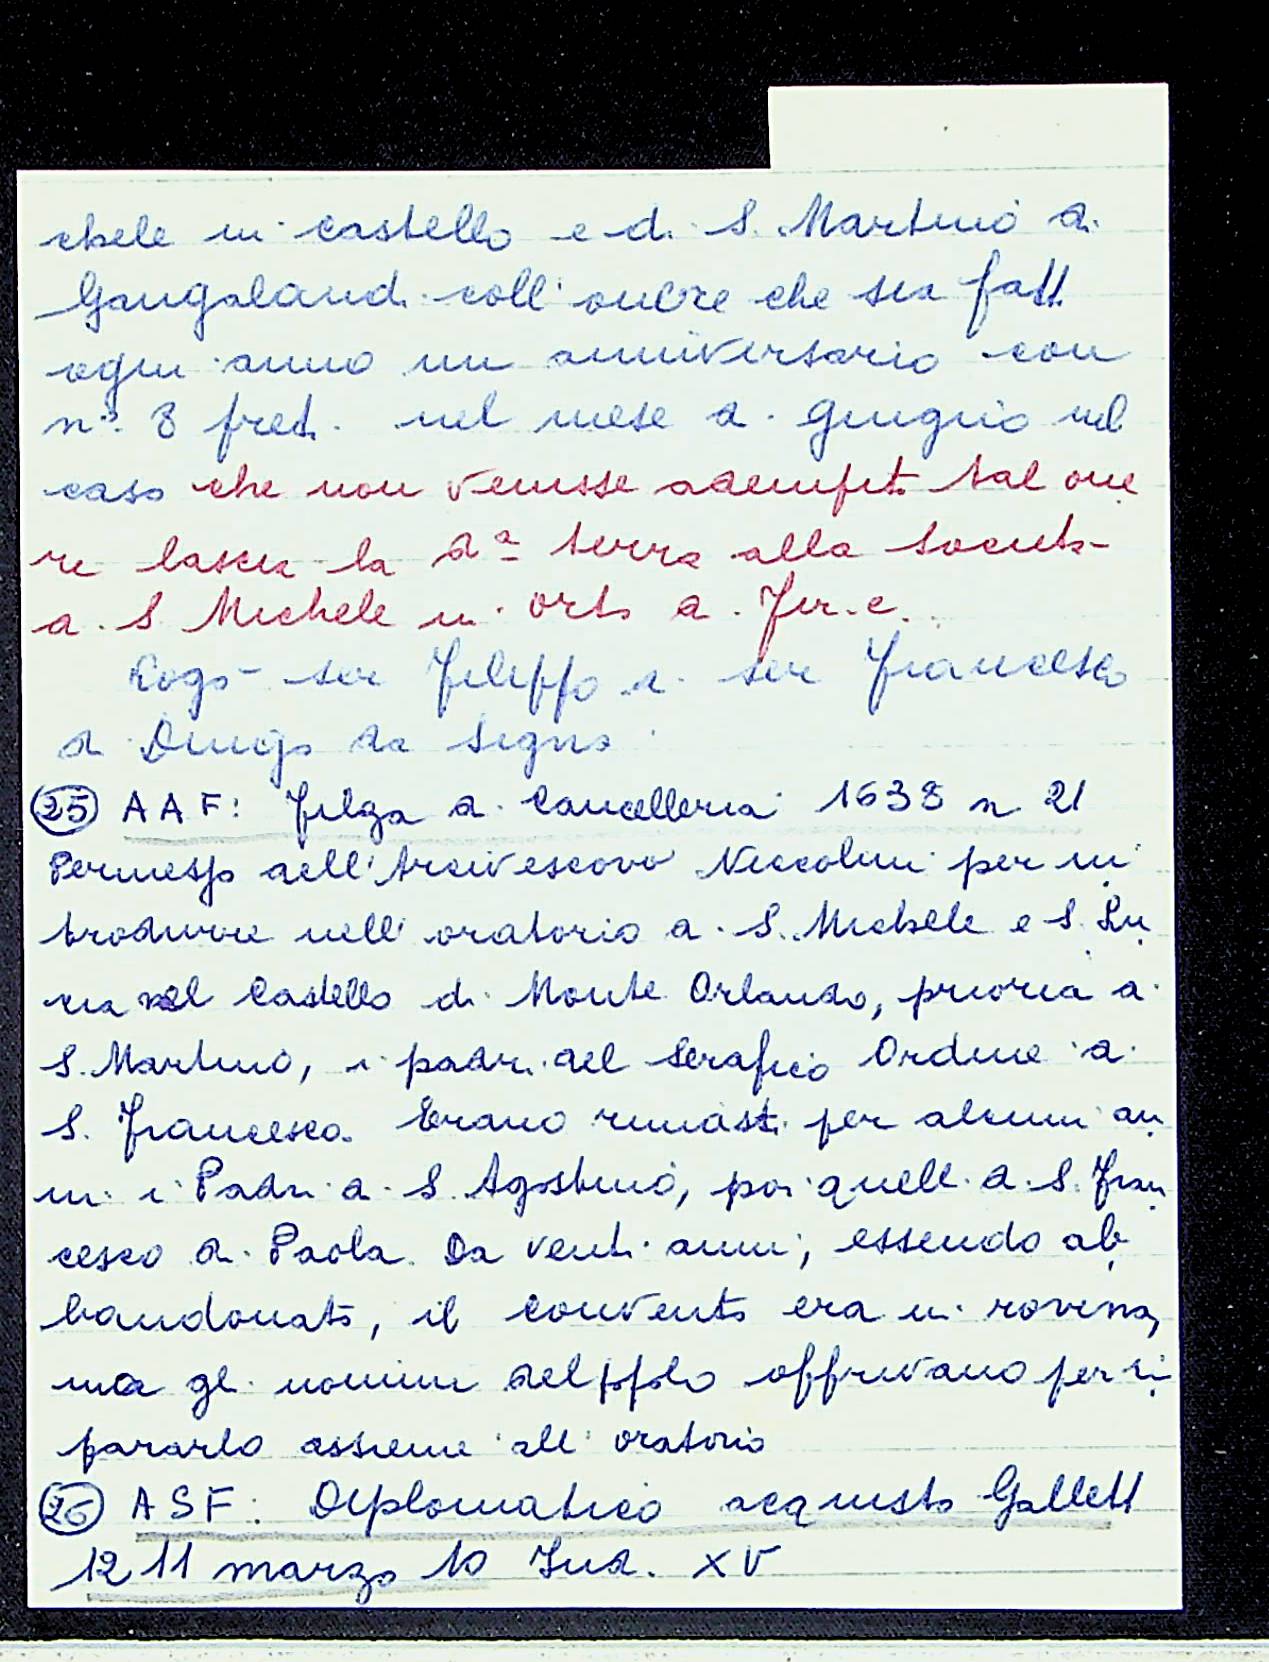 chele in castello e di S. Martino a
Gangalandi coll'onere che sia fatt
ogni anno un anniversario con
n° 8 preti nel mese di Giugno nel
caso che non venisse adempito tal one
re lascia la dª terra alla Società
di S Michele in Orto di Fir.e.
Rogò ser Filippo di ser Francesco
di Dingo da Signa
(25) AAF: Filza di Cancelleria 1638 n 21
Permesso dell'Arcivescovo Niccolini per in
trodurre nell'oratorio di S. Michele e S. Lu
cia nel Castello di Monte Orlando, prioria di
S. Martino, i padri del Serafico Ordine di
S. Francesco. Erano rimasti per alcuni an
ni i Padri di S. Agostino, poi quelli di S. Fran
cesco di Paola. Da venti anni, essendo ab
bandonato, il convento era in rovina,
ma gli uomini del popolo offrivano per ri
pararlo assieme all'oratorio
(26) ASF: Diplomatico acquisto Galletti
1211 marzo 10 Ind. XV